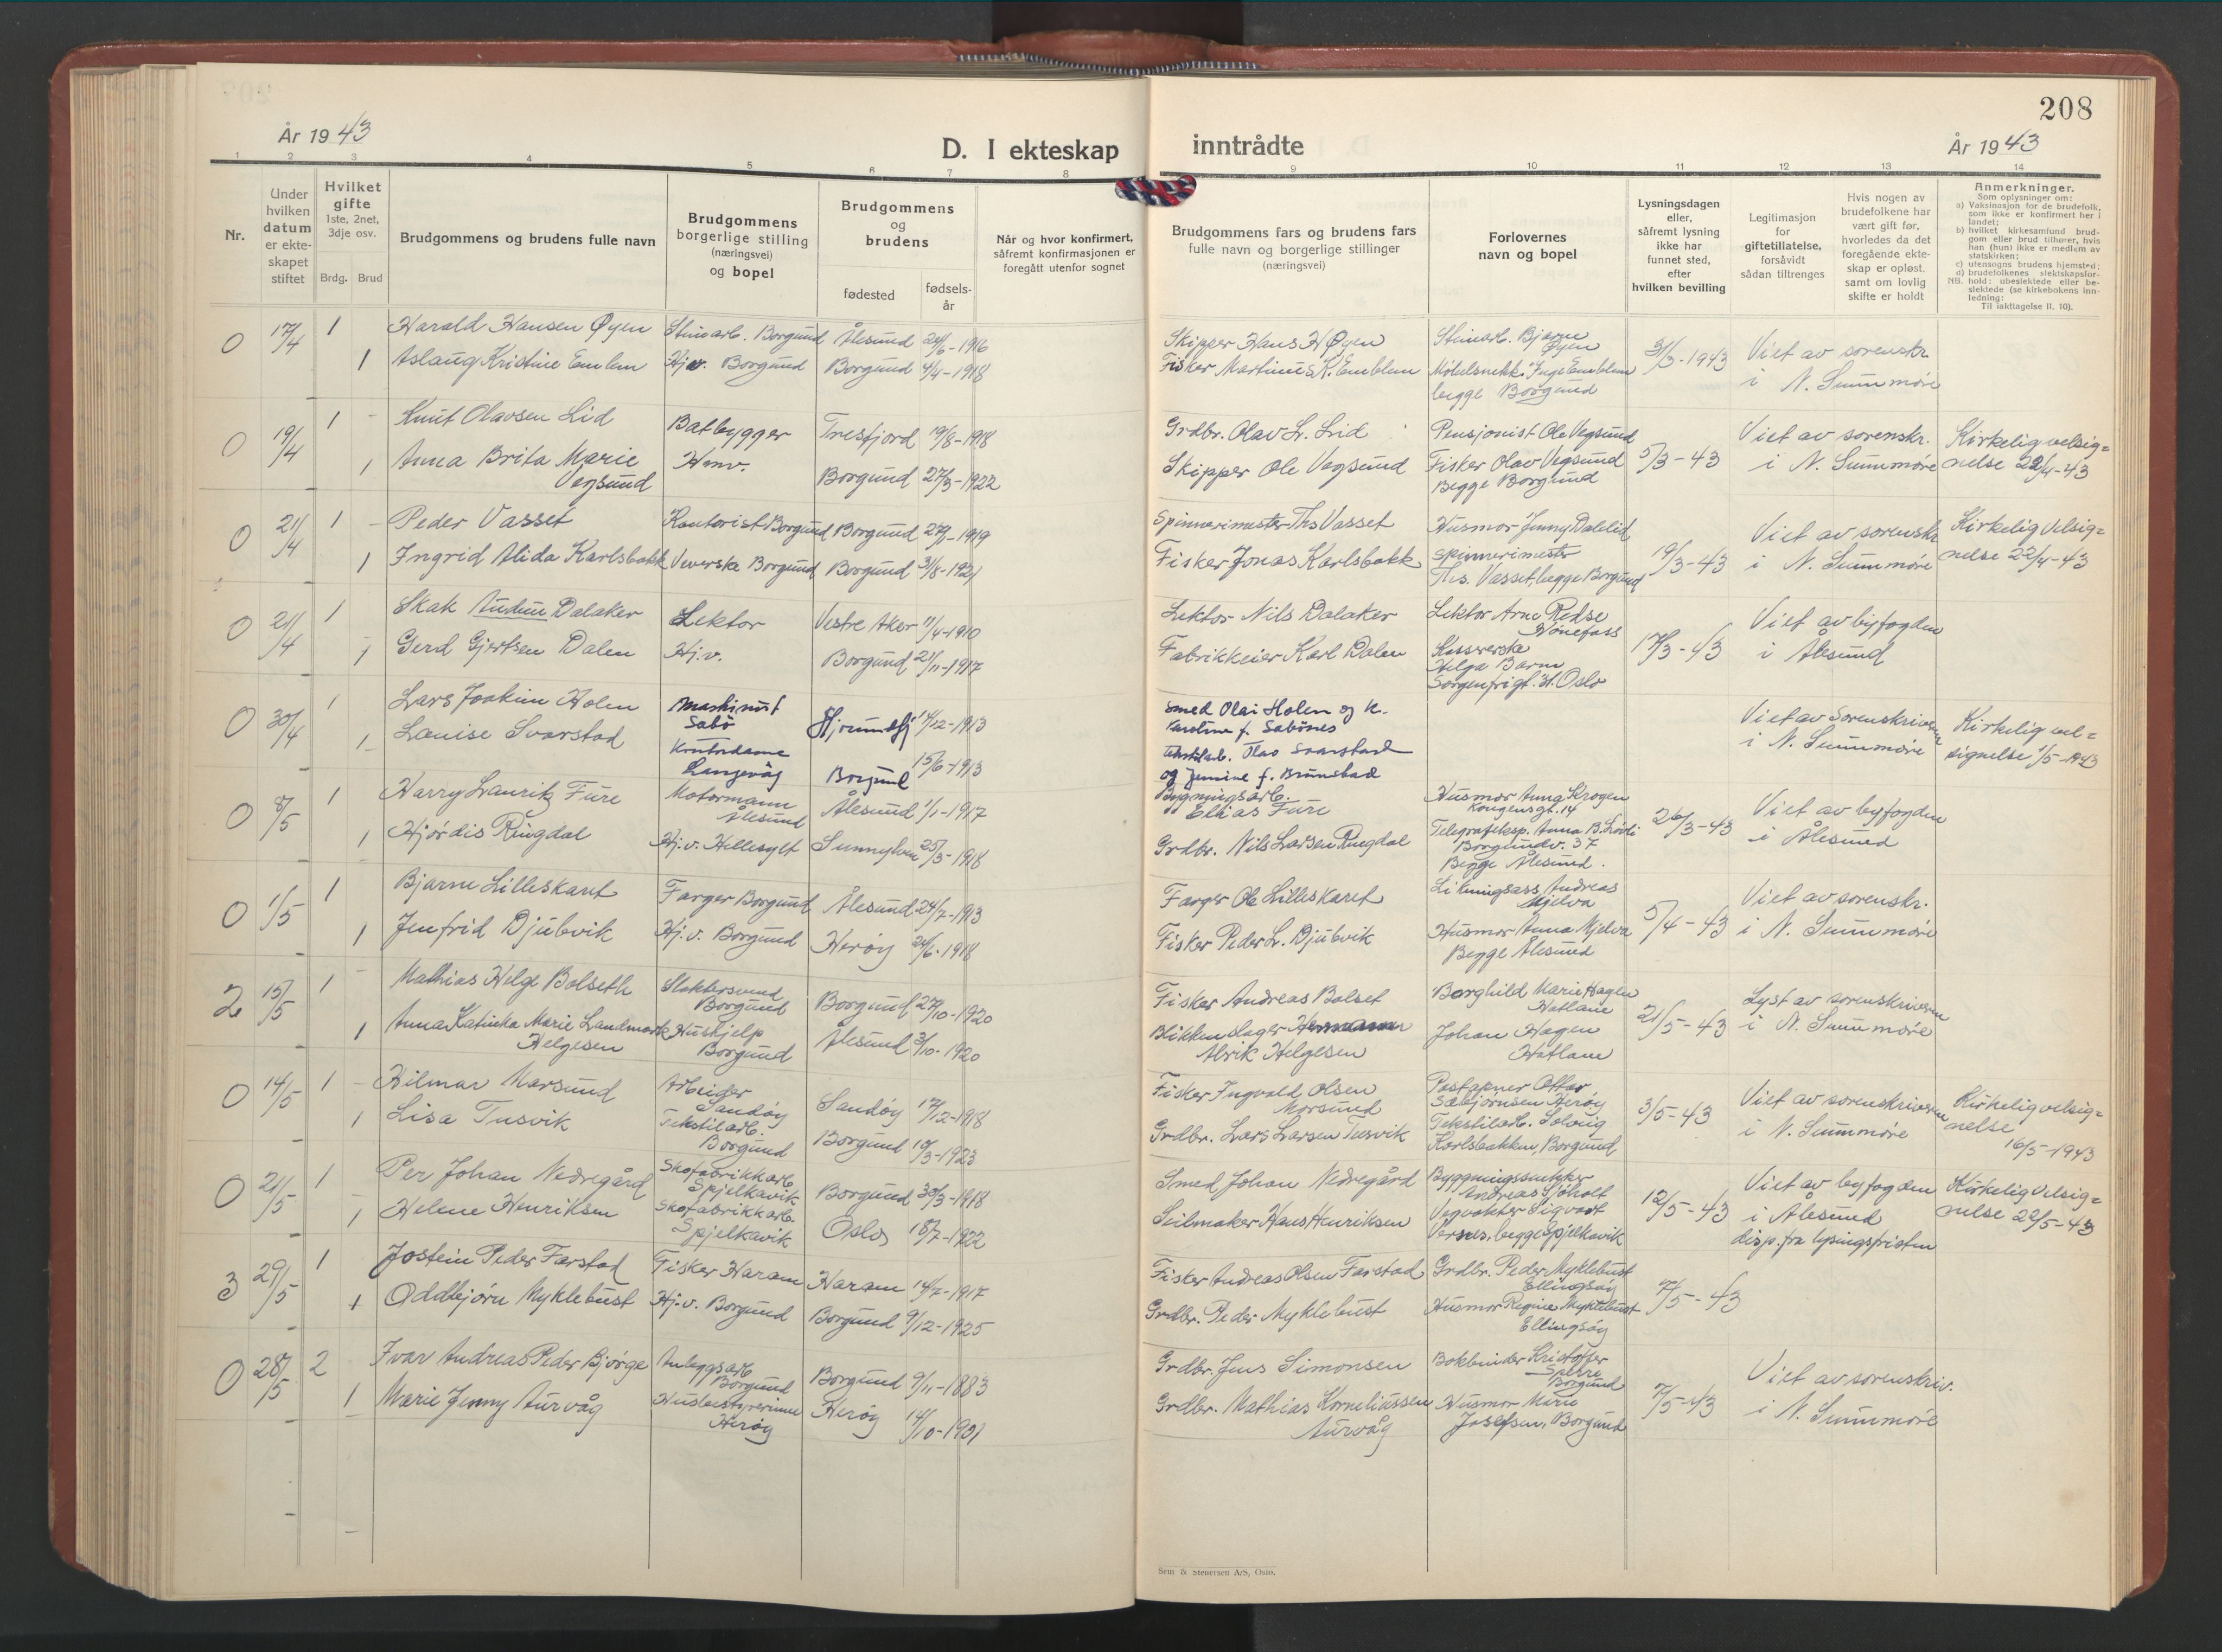 208
År 1943
D. I ekteskap inntrådte
År 1943
1 2 3 4 5 6 7 8 9 10 11 12 13 14
Nr.
Under
hvilken
datum
er ekte-
skapet
stiftet
Hvilket
gifte
1ste, 2net,
3dje osv.
Brdg. Brud
Brudgommens og brudens fulle navn
Brudgommens
borgerlige stilling
(næringsvei)
og bopel
Brudgommens
og
brudens
fødested
fødsels-
år
Når og hvor konfirmert,
såfremt konfirmasjonen er
foregått utenfor sognet
Brudgommens fars og brudens fars
fulle navn og borgerlige stillinger
(næringsvei)
Forlovernes
navn og bopel
Lysningsdagen
eller,
såfremt lysning
ikke har
funnet sted,
efter
hvilken bevilling
Legitimasjon
for
giftetillatelse,
forsåvidt
sådan tiltrenges
Hvis nogen av
brudefolkene har
vært gift før,
hvorledes da det
foregående ekte-
skap er opløst.
samt om lovlig
skifte er holdt
Anmerkninger.
Som oplysninger om:
a) Vaksinasjon for de brudefolk,
som ikke er konfirmert her i
landet;
b) hvilket kirkesamfund brud-
gom eller brud tilhører, hvis
han (hun) ikke er medlem av
statskirken;
c) utensogns brudens hjemsted;
d) brudefolkenes slektskapsfor-
hold: ubeslektede eller be-
slektede (se kirkebokens inn-
ledning:
Til iakttagelse II. 10).
NB.
0 17/4 1 Harald Hansen Øyen Stinarb. Borgund Ålesund 24/6-1916 Skipper Hans H Øyen Stinarb. Bjarne Øyen 31/3-1943 Viet av sorenskr.
1 Aslaug Kristine Emblem Hj.v. Borgund Borgund 4/4-1918 Fisker Martinus K. Emblem Møbelsnekk. Inge Emblem i N. Sunnmøre
begge Borgund
0 19/4 1 Knut Olavsen Lid Båtbygger Tresfjord 19/8-1918 Grdbr. Olav L. Lid Pensjonist Ole Vegsund 5/3-43 Viet av sorenskr. Kirkelig velsig=
1 Anna Brita Marie Hmv. Skipper Ole Vegsund Fisker Olav Vegsund i N. Sunnmøre nelse 22/4-43
Vegsund Borgund 27/3-1922 Begge Borgund
0 21/4 1 Peder Vasset Kontorist Borgund Borgund 1919 Spinnerimester Ths Vasset Husmor Jenny Dalelid 19/3-43 Viet av sorenskr. Kirkelig velsig=
1 Ingrid Alida Karlsbakk Veverske Borgund Borgund 31/8-1921 Fisker Jonas Karlsbakk Spinnerimester i N. Sunnmøre nelse 22/4-43
Ths. Vasset, begge Borgund
0 21/4 1 Skak Audun Dalaker Lektor Vestre Aker 11/4-1910 Lektor Nils Dalaker Lektor Arne Redse 17/3-43 Viet av byfogden
Hønefoss
1 Gerd Gjertsen Dalen Hj.v. Borgund 21/11-1917 Fabrikkeier Karl Dalen Kassererske i Ålesund
Helga
Sorgenfrigt. Oslo
0 30/4 1 Lars Joakim Holen Maskinist Hjørundfj 14/12-1913 Smed Olai Holen og k. Viet av Sorenskriveren Kirkelig vel=
Sæbö Karoline f. Sæbönes i N. Sunnmøre signelse 1/5-1943
1 Louise Svarstad Kontordame 15/6-1913 Olav Svarstad
Langevåg Borgund og f. Brunstad
0 8/5 1 Harry Lauritz Fure Motormann Ålesund 1/1-1917 Bygningsarb. Husmor Anna Krogen 26/3-43 Viet av byfogden
Ålesund Elias Fure Kongensgt. 14
1 Hjørdis Ringdal Hj.v. Hellesylt Sunnylven 25/3-1918 Grdbr. Nils Larsen Ringdal Telegrafeksp. Anna B. i Ålesund
Borgundv. 37
Begge Ålesund.
0 1/5 1 Bjarne Lilleskaret Farger Borgund Ålesund 24/7-1913 Farger Ole Lilleskaret Likningsass. Andreas 5/4-43 Viet av sorenskr.
Mjelva
1 Jenfrid Djubvik Hj.v. Borgund Herøy 24/6-1918 Fisker Peder L. Djubvik Husmor Anna Mjelva i N. Sunnmøre
Begge Ålesund
2 15/5 1 Mathias Helge Bolseth Slaktersvend Borgund 27/10-1920 Fisker Andreas Bolset Borghild Marie Hagen 21/5-43 Lyst av sorenskriveren
Borgund Hatlane
1 Anna Katinka Marie Landmark Hushjelp Ålesund 3/10-1920 Blikkenslager Hermann Johan Hagen i N. Sunnmøre
Helgesen Borgund Alrik Helgesen Hatlane
0 14/5 1 Hilmar Marsund Arbeider Sandøy 17/12-1918 Fisker Ingvald Olsen Poståpner Ottar 3/5-43 Viet av sorenskriveren Kirkelig velsig=
Sandøy Marsund Sæbjørnsen Herøy nelse
1 Lisa Tusvik Tekstilarb. Borgund 10/3-1923 Grdbr. Lars Larsen Tusvik Tekstilarb. Solveig i N. Sunnmøre 16/5-1943
Borgund Karlsbakken, Borgund
0 21/5 1 Per Johan Nedregård Skofabrikkarb. Borgund 30/3-1918 Smed Johan Nedregård Byggningssnikker 12/5-43 Viet av byfogden Kirkelig velsig=
Spjelkavik Andreas Sjøholt
1 Helene Henriksen Skofabrikkarb. Oslo 18/7-1922 Seilmaker Hans Henriksen Vegvokter Sigvart i Ålesund nelse 22/5-43
Spjelkavik Versnes, begge Spjelkavik disp. fra lysingsfristen
3 29/5 1 Jostein Peder Farstad Fisker Haram Haram 14/7-1917 Fisker Andreas Olsen Farstad Grdbr. Peder Myklebust 7/5-43
Ellingsøy
1 Oddbjørn Myklebust Hj.v. Borgund Borgund 9/12-1925 Grdbr. Peder Myklebust Husmor Regine Myklebust
Ellingsøy
0 28/5 2 Ivar Andreas Peder Bjørge Anleggsarb. Borgund 9/11-1883 Grdbr. Jens Simonsen Bokbinder Kristoffer 7/5-43 Viet av sorenskriv.
Borgund Sperre
Borgund
1 Marie Jenny Aurvåg Husbestyrerinne Herøy 14/10-1901 Grdbr. Mathias Korneliussen Husmor Marie i N. Sunnmøre
Herøy Aurvåg Josefsen, Borgund
Sem & Stenersen A/S, Oslo.